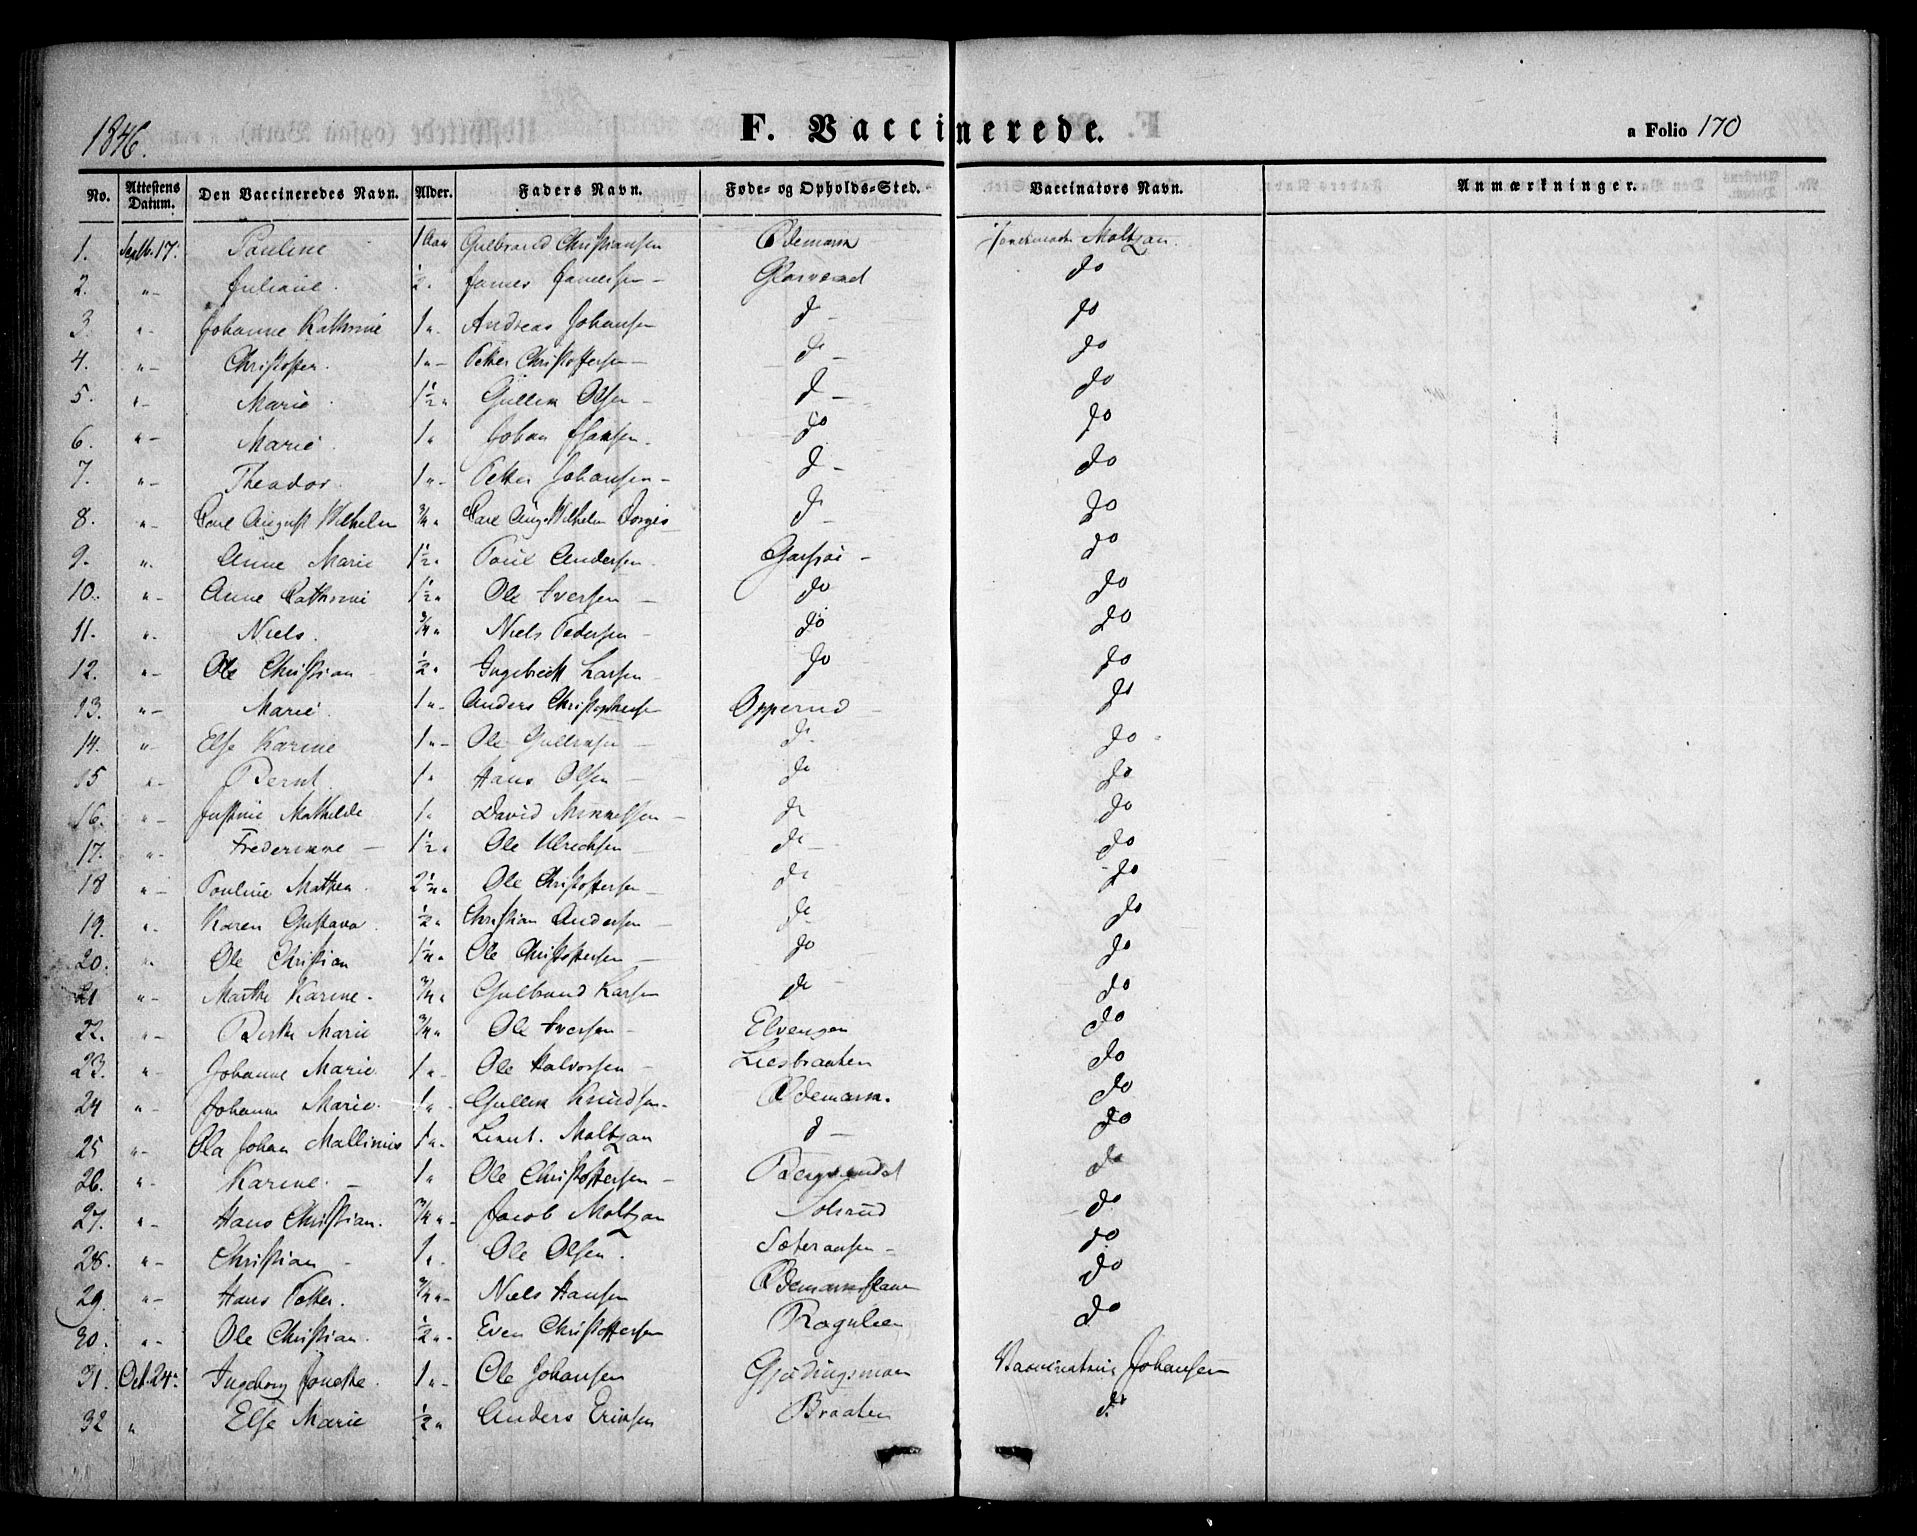 1846.
F. Vaccinerede.
a Folio 170
No. Attestens Datum. Den Vaccineredes Navn. Alder. Faders Navn. Føde- og Opholds-Sted. Vaccinators Navn. Anmærkninger.
1. Septb. 17. Pauline 1 Aar Gulbrand Christiansen Ødemark Moltzau.
2. "- Juliane. ½ " James Jamessen - Glosrød do
3. "- Johanne Kathrine 1 " Andreas Johansen d - do
4. "- Christoffer. 1 "- Petter Christoffersen - d - do
5. "- Marie 1½ " Gullik Olsen - d - do
6. "- Marie 1 " Johan Hansen. do do
7. "- Theodor. 1 "- Petter Johansen - d - do
8. "- Carl August Wilhelm ¾ " Carl Aug. Wilhelm d - do
9. ". Anne Marie 1½ " Poul Andersen. - do
10. "- Anne Cathrine 1½ " Ole Iversen - do do
11. ". Niels. ¾ " Niels Pedersen - do do
12. "- Ole Christian - ½ " Ingebrett Larsen - do do
13. "- Marie 1 "- Anders Christophersen Opperud - do
14. "- Else Karine 1 "- Ole Gulbransen - do do
15 "- Bernt 1 " Hans Olsen - do do
16. "- Justine Mathilde 1 " David Mikkelsen - do do
17. "- Frederikke - 1½ " Ole Ulrichsen - do - do
18 "- Pauline Mathea. 2½ " Ole Christoffersen - do - do
19. "- Karen Gustava. ½ " Christian Andersen - do do
20. "- Ole Christian 1½ " Ole Christoffersen - do do
21 "- Marthe Karine. ¾ " Gulbrand Larsen do do
22. "- Berthe Marie ¾ " Ole Iversen - Elvengen do
23. "- Johanne Marie. 1 " Ole Halvorsen - Liesbraaten do
24 "- Johanne Marie. 1 " Gullik Knudsen. Ødemark. do
25 "- Ola Johan Mallinius 1 "- Lieut. Moltzau d - do
26. "- Karine. - 1 " Ole Christoffersen - do
27. "- Hans Christian. ¾ "- Jacob Moltzau Solrud do
28. "- Christian - 1 " Ole Olsen. - do
29. "- Hans Petter. ¾ "- Niels Hansen do
30. "- Ole Christian. ½ "- Even Christoffersen do
31. Oct. 24. Ingeborg 1 "- Ole Johansen Johansen
32 " Else Marie ½ " Anders Eriksen Braaten do